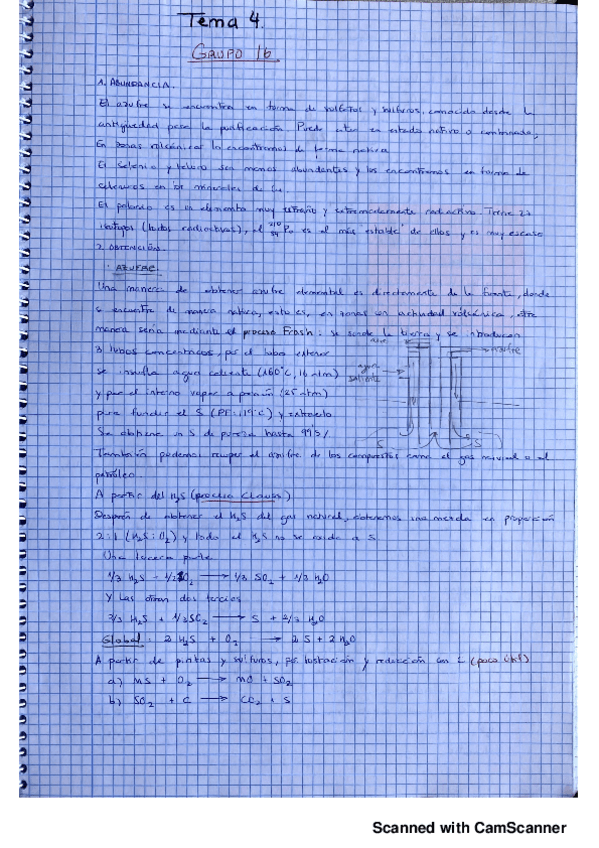 Tema 4.
GRUPO 16
1. ABUNDANCIA.
El azufre se encuentra en forma de sulfatos y sulfuros, conocida desde la
antigüedad para la purificación. Puede estar en estado nativo o combinado,
En zonas volcánicas lo encontramos de forma nativa
El Selenio y teluro son menos abundantes y los encontramos en forma de
en los minerales de Cu.
El polonio es un elemento muy extraño y extremadamente radiactivo. Tiene 27
isótopos (todos radioactivos), el 210 84 Po es el más "estable" de ellos y es muy escaso
2. OBTENCIÓN.
· AZUFRE:
Una manera de obtener azufre elemental es directamente de la fuente, donde
se encuentre de manera nativa, esto es, en zonas con actividad volcánica, otra
manera sería mediante el proceso Frash: se sonda la tierra y se introducen
3 tubos concéntricos, por el tubo exterior
se insufla agua caliente (160°C, 16 atm)
y por el interno vapor a presión (25 atm)
para fundir el S (PF: 119°C) y extraerlo
Se obtiene un S de pureza hasta 99%
aire
azufre
agua
caliente
S
S
También podemos recuper el azufre de los compuestos como el gas natural o el
petróleo.
A partir del H2S (proceso Clauss)
Después de obtener el H2S del gas natural, obtenemos una mezcla en proporción
2:1 (H2S:O2) y todo el H2S no se oxida a S
Una tercera parte
1/3 H2S + 1/2 O2 → 1/3 SO2 + 1/3 H2O
Y las otras dos tercios
2/3 H2S + 1/3 SO2 → S + 2/3 H2O
Global: 2 H2S + O2 → 2 S + 2 H2O
A partir de piritas y sulfuros, por tostación y reducción con C (poco útil)
a) MS + O2 → MO + SO2
b) SO2 + C → CO2 + S
Scanned with CamScanner